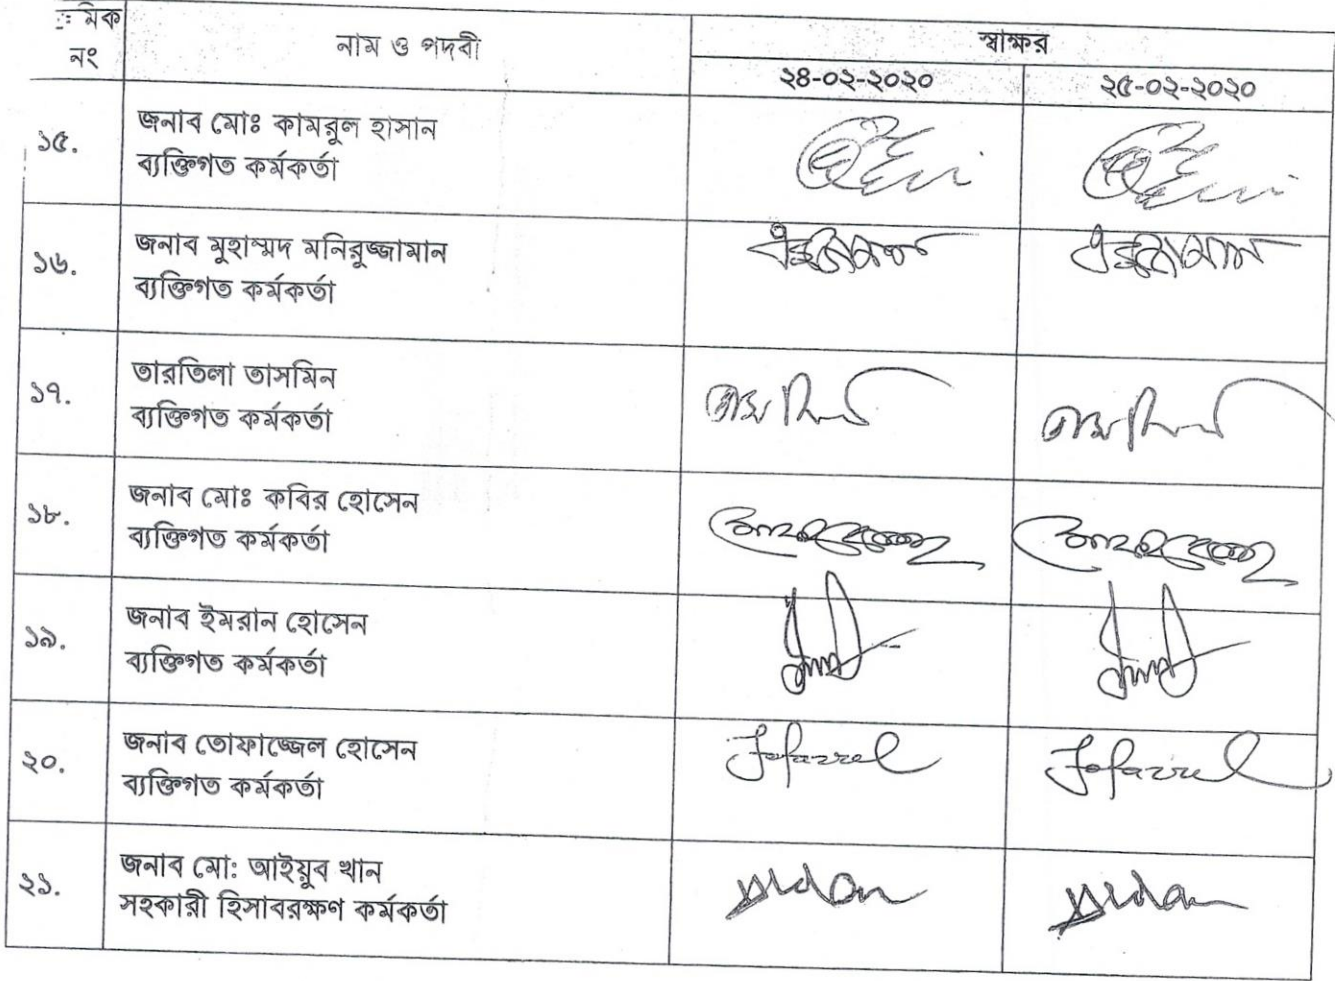 মিক
নং
নাম ও পদবী
স্বাক্ষর
২৪-০২-২০২০
২৫-০২-২০২০
১৫.
জনাব মোঃ কামরুল হাসান
ব্যক্তিগত কর্মকর্তা
১৬.
জনাব মুহাম্মদ মনিরুজ্জামান
ব্যক্তিগত কর্মকর্তা
১৭.
তারতিলা তাসমিন
ব্যক্তিগত কর্মকর্তা
১৮.
জনাব মোঃ কবির হোসেন
ব্যক্তিগত কর্মকর্তা
১৯.
জনাব ইমরান হোসেন
ব্যক্তিগত কর্মকর্তা
২০.
জনাব তোফাজ্জেল হোসেন
ব্যক্তিগত কর্মকর্তা
Tofazzel
Tofazzel
২১.
জনাব মো: আইয়ুব খান
সহকারী হিসাবরক্ষণ কর্মকর্তা